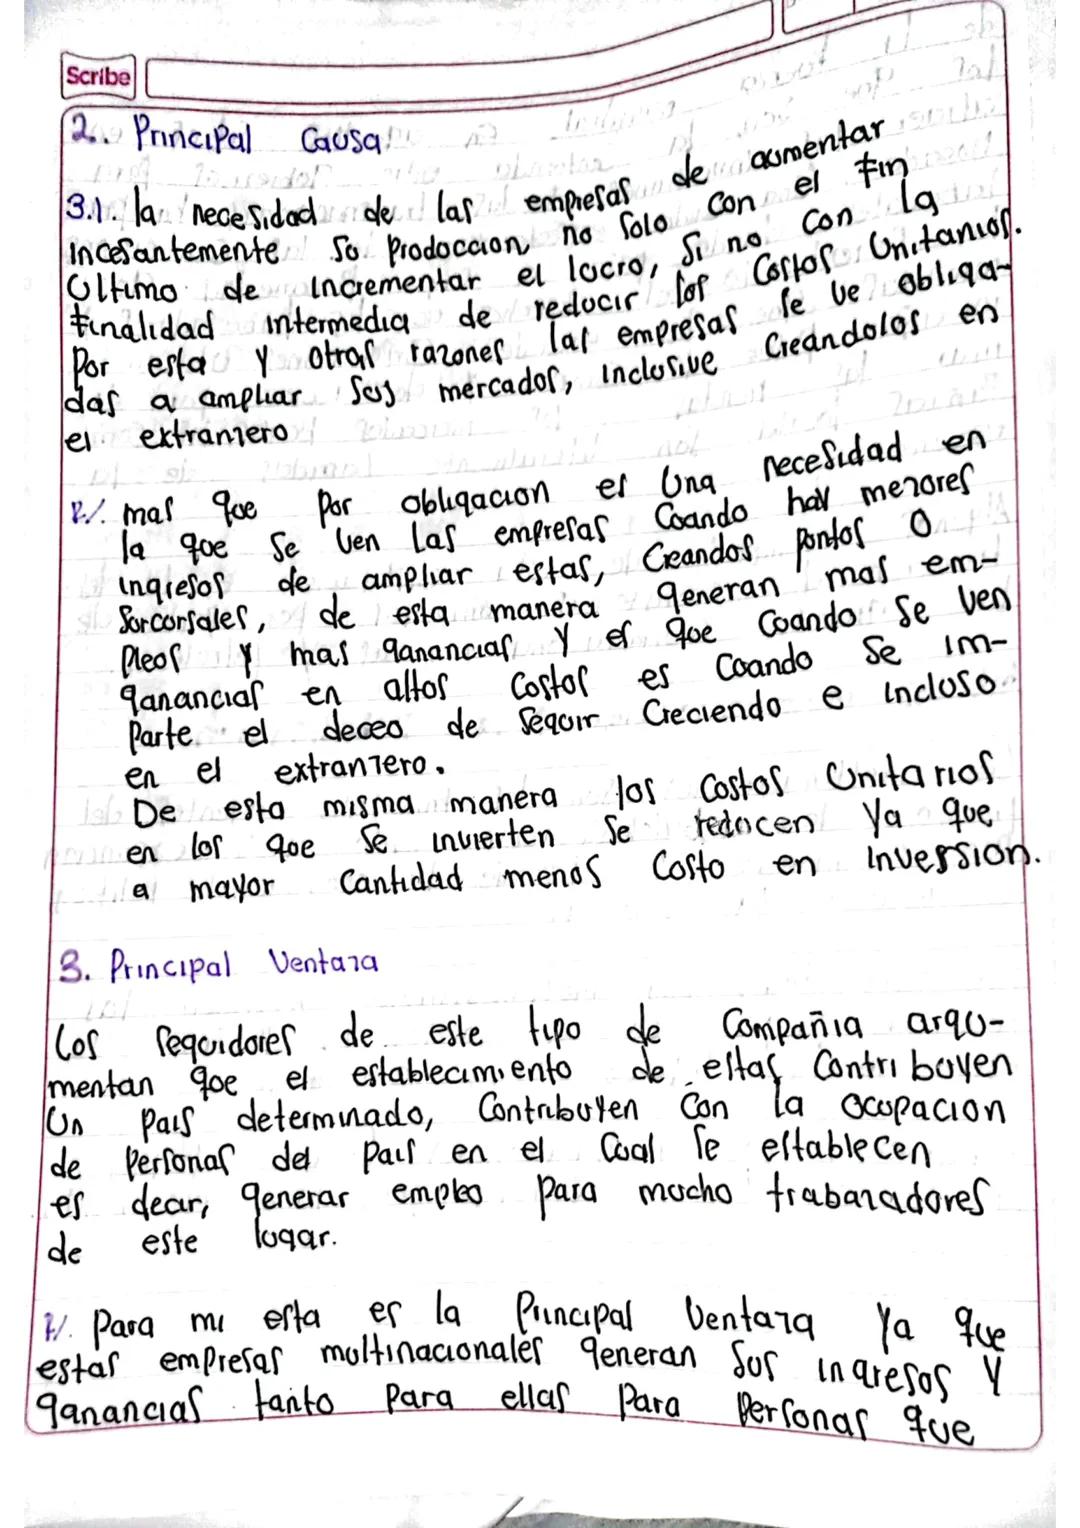 Scribe
2. Principal Causa
3.1. la necesidad de las empresas de aumentar
incesantemente su produccion, no solo con el fin
Ultimo de incrementar el lucro, si no con la
finalidad intermedia de reducir los Costos Unitarios.
Por esta y otras razones las empresas se ve obliga-
das a ampliar sus mercados, inclusive Creandolos en
el extranjero
R/. mas que por obligacion es Una necesidad en
la que se ven Las empresas Cuando hay menores
ingresos de ampliar estas, Creandos puntos o
Surcursales, de esta manera generan mas em-
pleos y mas ganancias y es que Cuando se ven
ganancias en altos Costos es Cuando se im-
parte el deceo de seguir Creciendo e incluso
en el extranjero.
De esta misma manera los Costos Unitarios
en los que se invierten se reducen ya que
a mayor Cantidad menos Costo en inversion.
3. Principal Ventaja
Los seguidores de este tipo de Compañia argu-
mentan que el establecimiento de estas Contribuyen
Un pais determinado, Contribuyen Con la ocupacion
de personas del pais en el Cual se establecen
es decir, generar empleo para mucho trabajadores
de este lugar.
R/. Para mi esta es la Principal Ventaja ya que
estas empresas multinacionales generan sus ingresos y
ganancias tanto para ellas para personas que